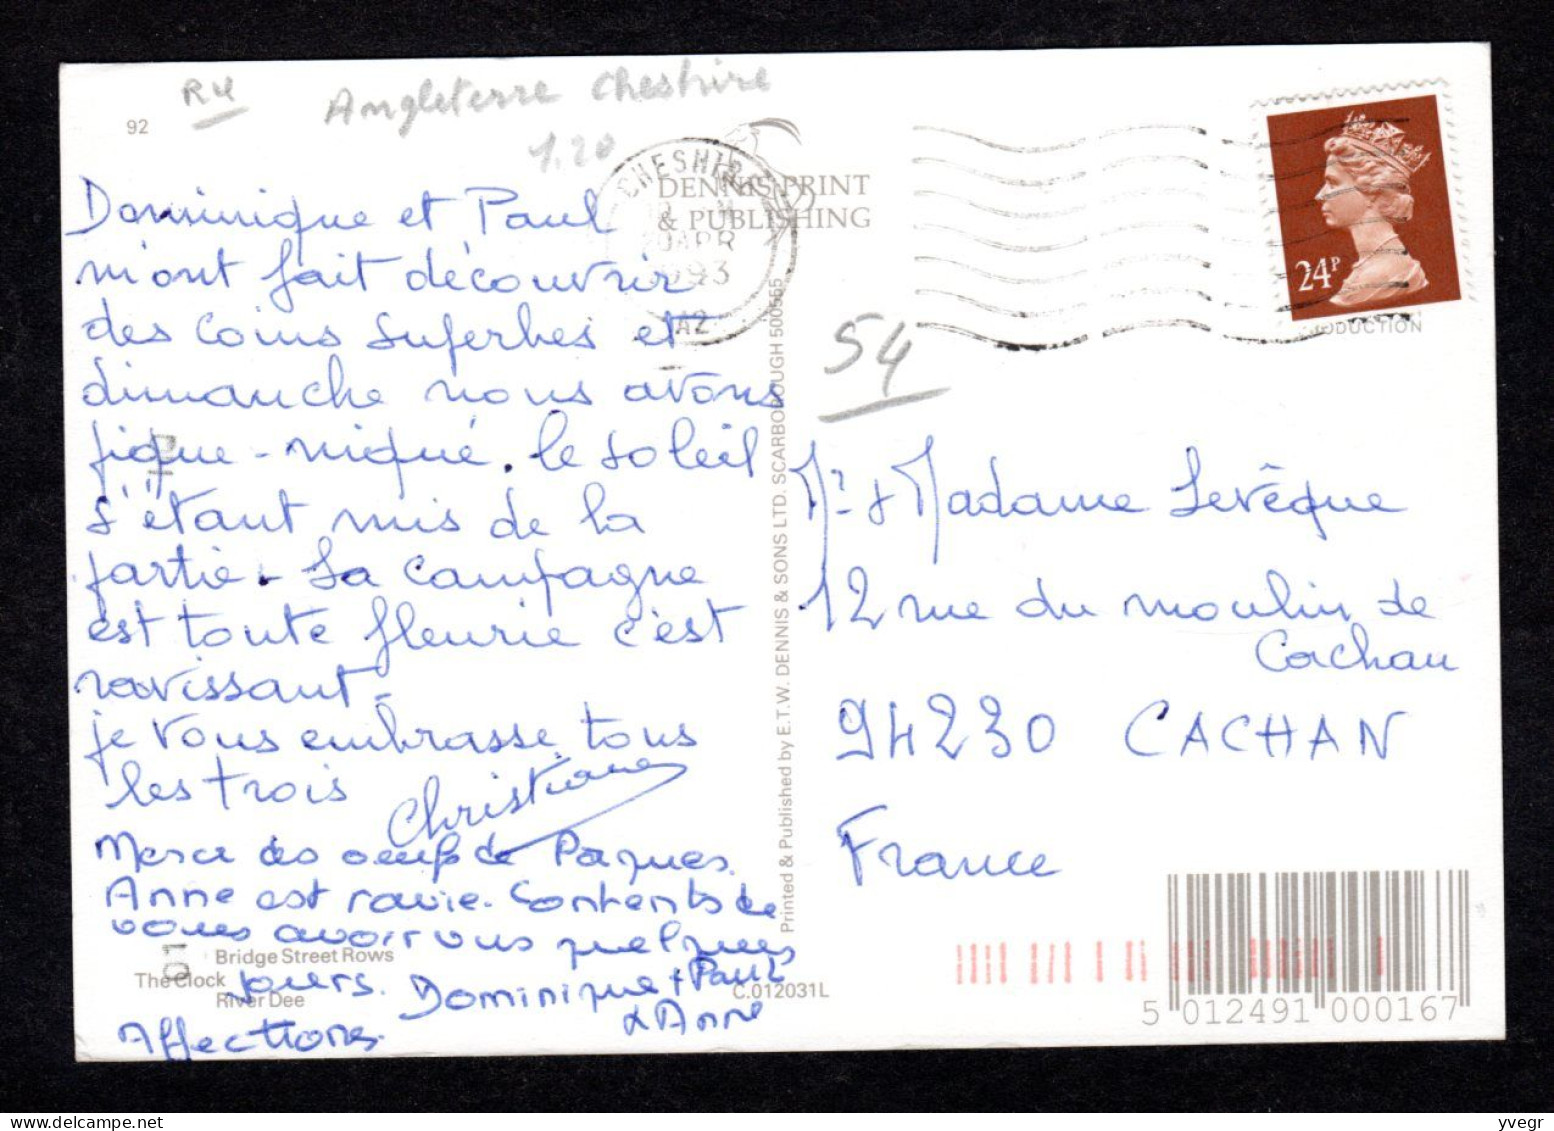 92
RU
Angleterre Cheshire
1.20
CHESHIR
20 APR
1993
A2
DENNIS PRINT
& PUBLISHING
24P
ODUCTION
54
Dominique et Paul
m'ont fait découvrir
des coins superbes et
dimanche nous avons
pique-niqué. le soleil
s'étant mis de la
partie. La campagne
est toute fleurie c'est
ravissant.
je vous embrasse tous
les trois
Christiane
Merci des oeufs de Paques.
Anne est ravie. Contents de
vous avoir vus quelques
jours. Dominique + Paul
& Anne
Affections.
Bridge Street Rows
The Clock
River Dee
C.012031L
Printed & Published by E.T.W. DENNIS & SONS LTD. SCARBOROUGH 500565
Mr & Madame Levêque
12 rue du moulin de
Cachan
94230 CACHAN
France
5 012491 000167
yvegr